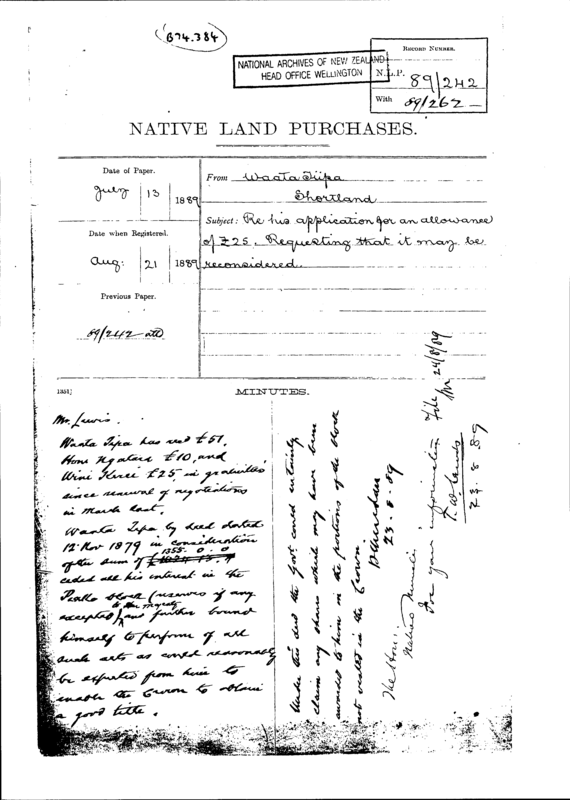 B74.384
NATIONAL ARCHIVES OF NEW ZEALAND
HEAD OFFICE WELLINGTON
RECORD NUMBER.
N.L.P. 89/242
With 89/262
NATIVE LAND PURCHASES.
Date of Paper.
July 13 1889
Date when Registered.
Aug: 21 1889
Previous Paper.
89/242
From Waata Tiipa
Shortland
Subject: Re his application for an allowance
of £25. Requesting that it may be
reconsidered.
1351]
MINUTES.
Mr. Lewis.
Waata Tipa has recd £51,
Hone Ngatara £10, and
Wini Kerei £25, in gratuities
since renewal of negotiations
in March last.
Waata Tipa by deed dated
12 Nov 1879 in consideration
of the sum of £1355.0.0
ceded all his interest in the
block (reserves if any
excepted) to Her Majesty and further bound
himself to perform of all
such acts as could reasonably
be expected from him to
enable the Crown to obtain
a good title.
Under this deed the Govt could certainly
claim any shares which may have been
awarded to him in the portions of the block
not vested in the Crown.
23-8-89
The Hon:
Native Minister
For your information
T.W. Lewis
23.8.89
File
24/8/89